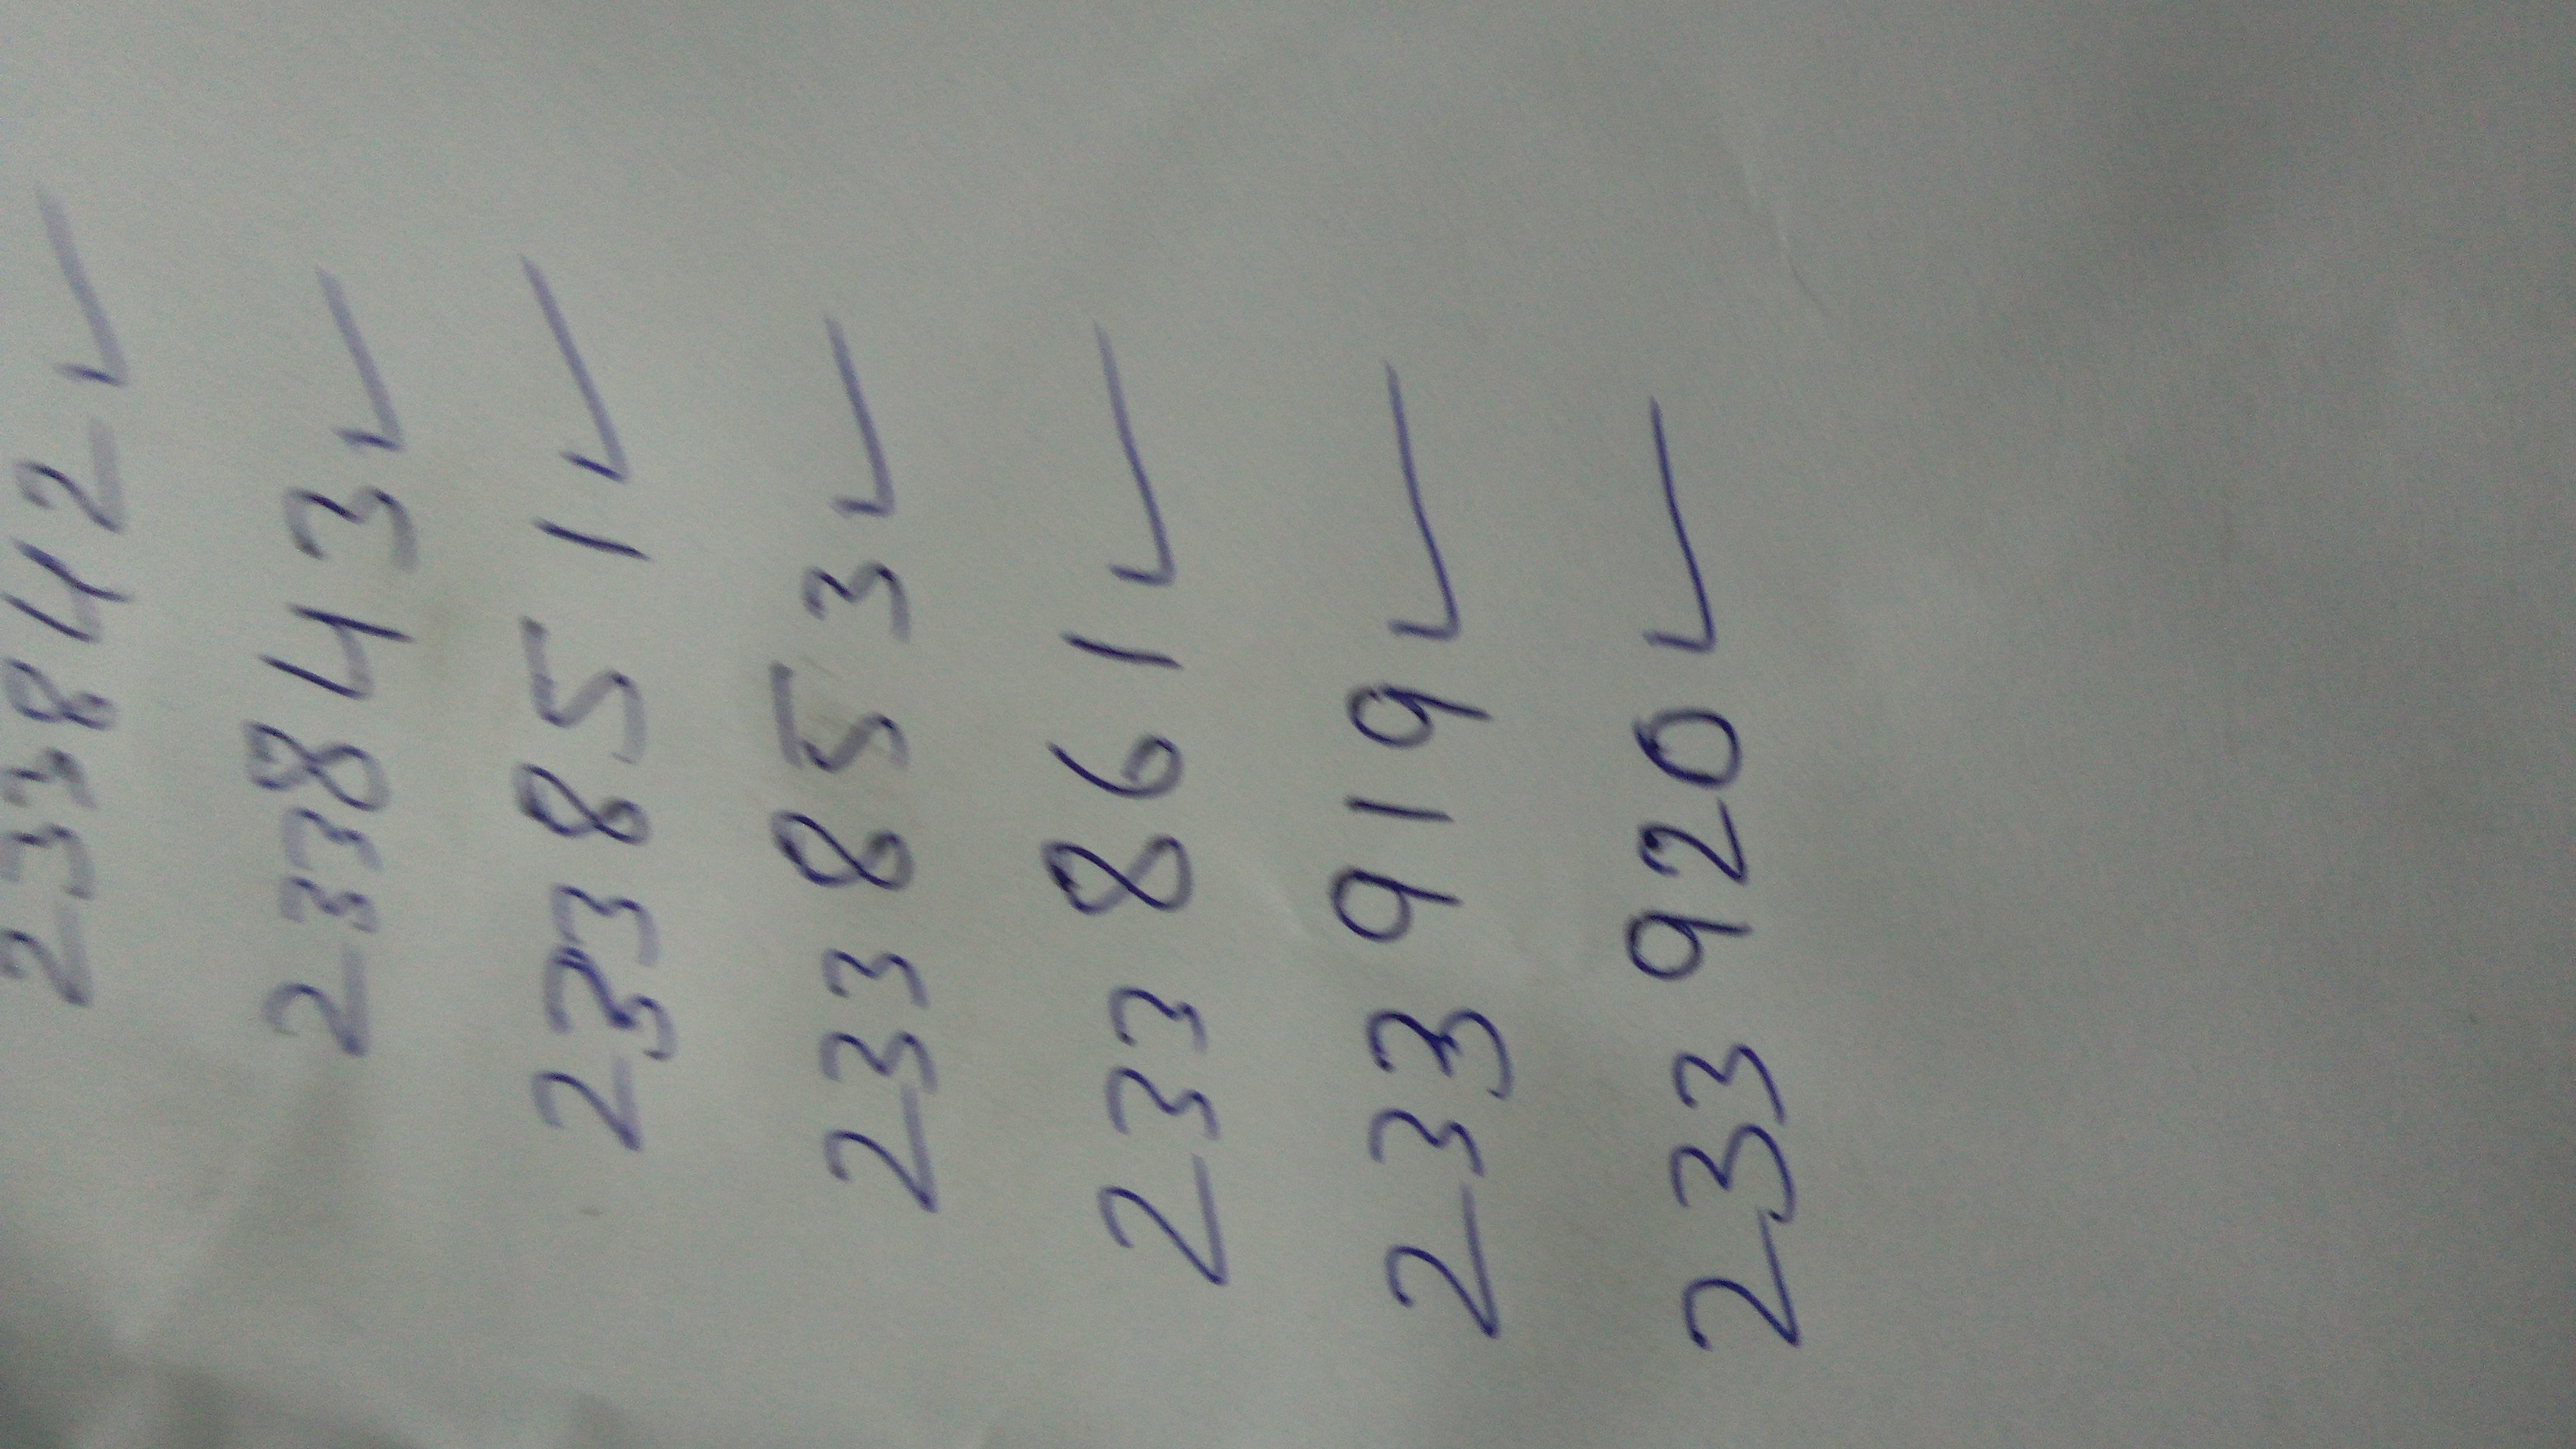 233842 ✓
233843 ✓
233851 ✓
233853 ✓
233861 ✓
233919 ✓
233920 ✓